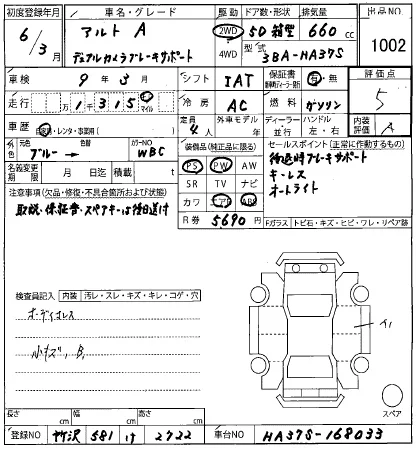 初度登録年月 車名・グレード 駆動 ドア数・形状 排気量 出品NO
6/3月 アルト A 2WD 5D 箱型 660cc 1002
デュアルカメラブレーキサポート 4WD 型式 3BA-HA37S
車検 9年3月 シフト IAT 保証書 有・無 評価点
走行 万1千315 km マイル 冷房 AC 燃料 ガソリン 5
車歴 自家用・レンタ・事業用( ) 定員 4人 外車モデル年 ディーラー 並行 ハンドル 左・右 内装 A
色 元色 ブルー → 色替 カラーNO WBC 装備品(純正品に限る) セールスポイント(正常に作動するもの)
名義変更期限 月 日迄 積載 t PS PW AW 後退時ブレーキサポート
注意事項(欠品・修復・不具合箇所および状態) SR TV ナビ キーレス
取説・保証書・スペアキーは後日送付 カワ エアB ABS オートライト
R券 5690円 Fガラス トビ石・キズ・ヒビ・ワレ・リペア跡
検査員記入 内装 汚レ・スレ・キズ・キレ・コゲ・穴
オーディオレス
小キズ, B,
イ
スペア
長さ cm 幅 cm 高さ cm
登録NO 所沢 581 け 2722 車台NO HA37S-168033